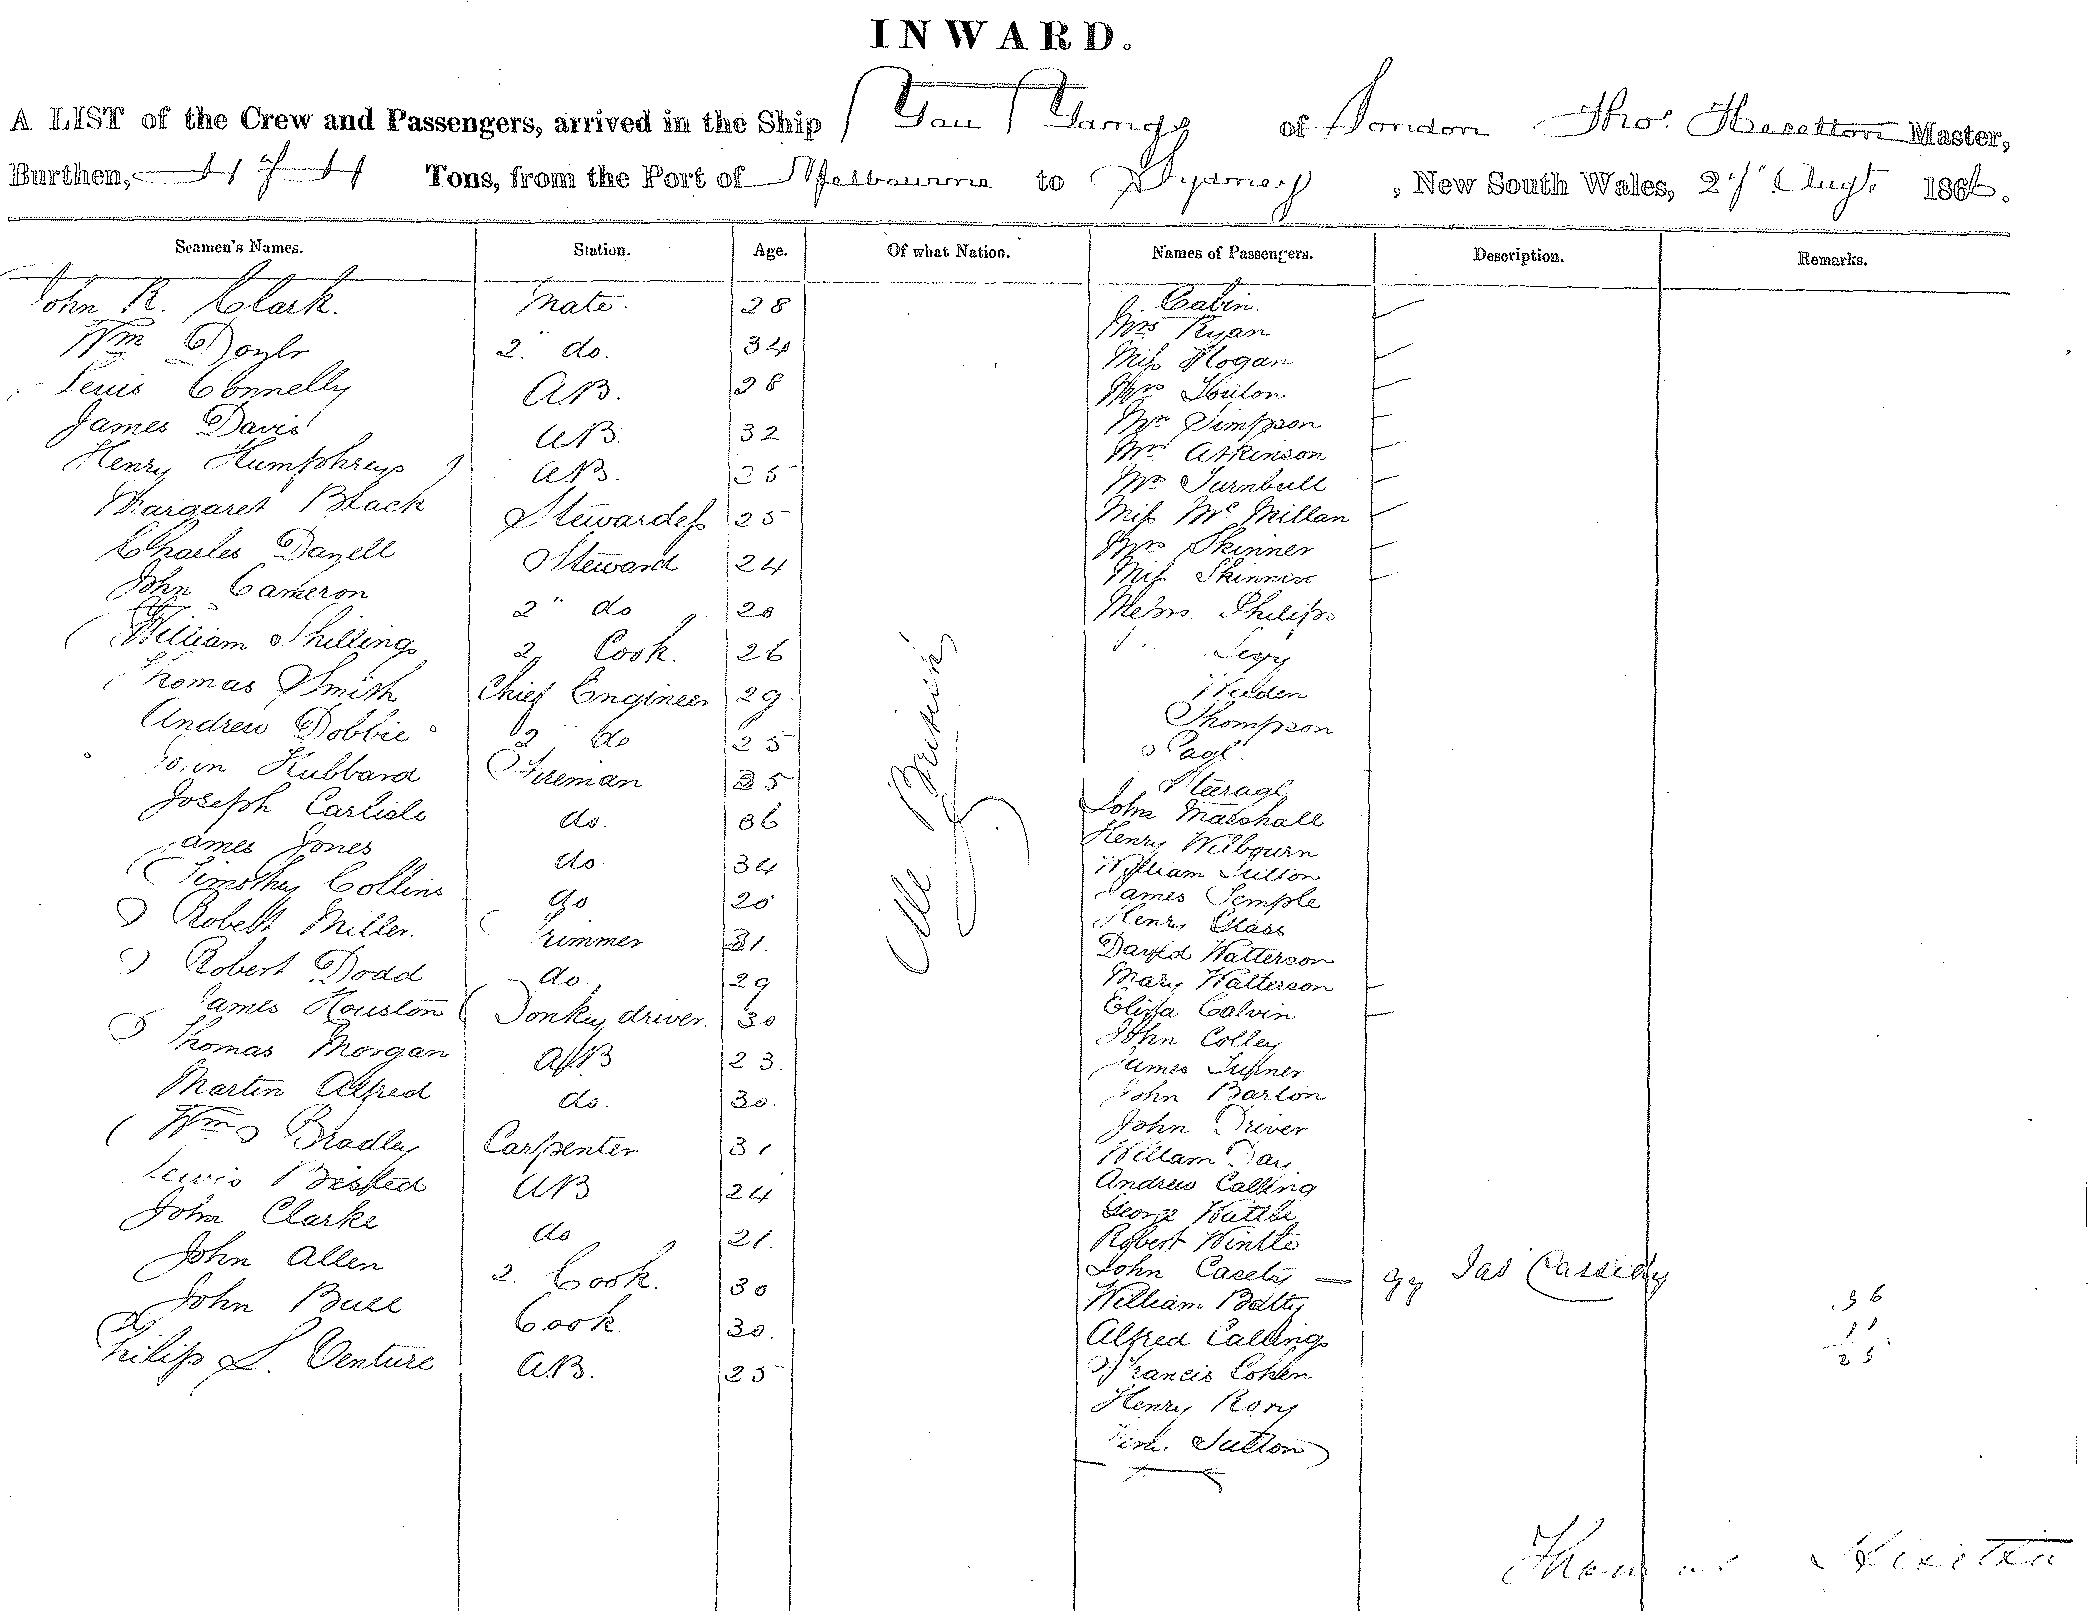 INWARD.
A LIST of the Crew and Passengers, arrived in the Ship You Yangs of London Thos. Heselton Master,
Burthen, Tons, from the Port of Melbourne to Sydney, New South Wales, 27 Augt. 1866.
Seamen's Names. Station. Age. Of what Nation. Names of Passengers. Description. Remarks.
John R. Clark. Mate. 28
Wm Doyle 2" do. 34
Connelly AB. 28
James Davis AB. 32
Henry Humphreys AB. 25
Margaret Black Stewardess 25
Charles Dazell Steward 24
John Cameron 2" do 20
William Shillings 2 Cook. 26
Thomas Smith Chief Engineer 29
Andrew Dobbie 2" do 25
John Hubbard Fireman 35
Joseph Carlisle do. 36
James Jones do 34
Timothy Collins do 20
Robert Miller. Trimmer 31.
Robert Dodd do 29
James Houston Donkey driver. 30
Thomas Morgan AB 23.
Martin Alfred do. 30.
Wm Bradley Carpenter 31
Lewis AB 24
John Clarke do 21.
John Allen 2. Cook. 30
John Bull Cook 30.
Philip L. Venture AB. 25
All British
Cabin.
Mrs Ryan
Miss Hogan
Mrs
Mrs Simpson
Mrs Atkinson
Mrs Turnbull
Miss McMillan
Mrs Skinner
Miss Skinner
Messrs Philips
" Levy
Thompson
Page
Steerage
John Marshall
Henry Wilbourn
William Sutton
James Temple
Henry Glass
David Watterson
Mary Watterson
Eliza Calvin
John Colley
James Turner
John Barton
John Driver
William Day
Andrew Calling
George Wattle
Robert Wintle
John Casety — Jas Cassidy
William Batty
Alfred Callings
Francis Cohen
Henry Rory
Sutton
36
11
25
Thomas Heselton